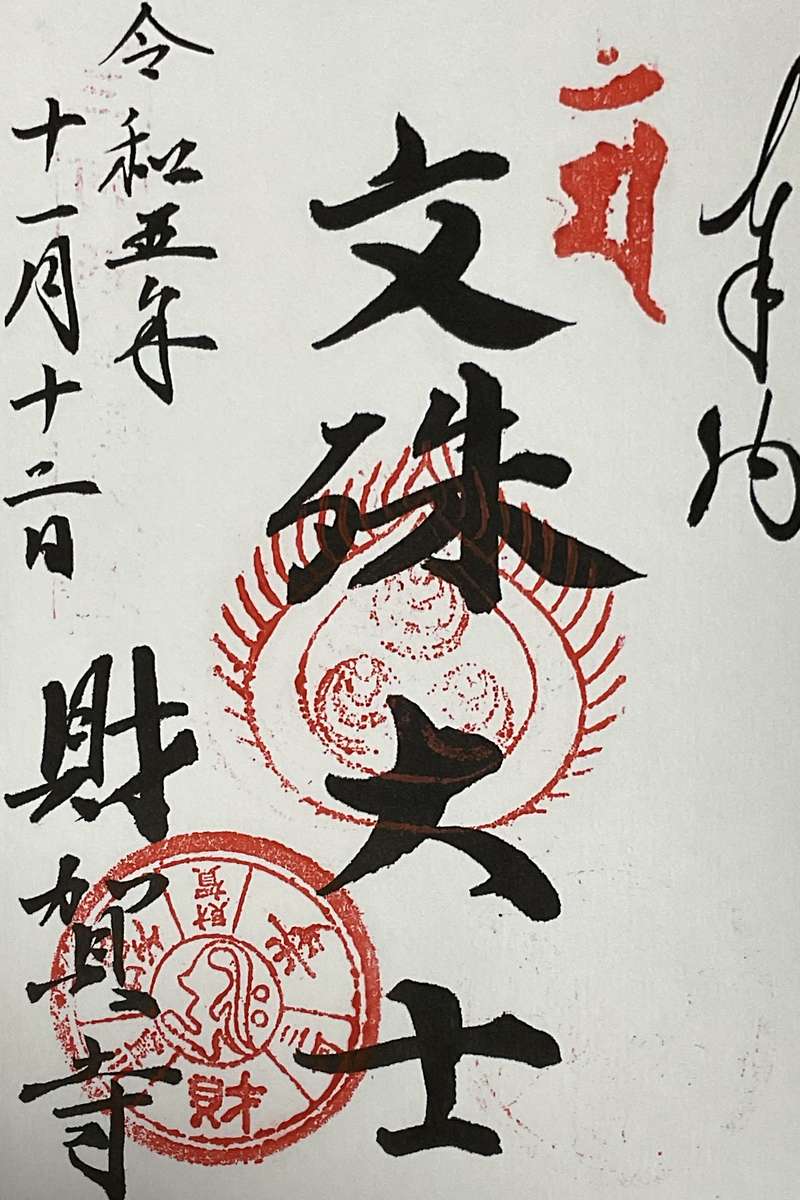 奉拝
文殊大士
令和五年
十一月十二日
財賀寺
財賀